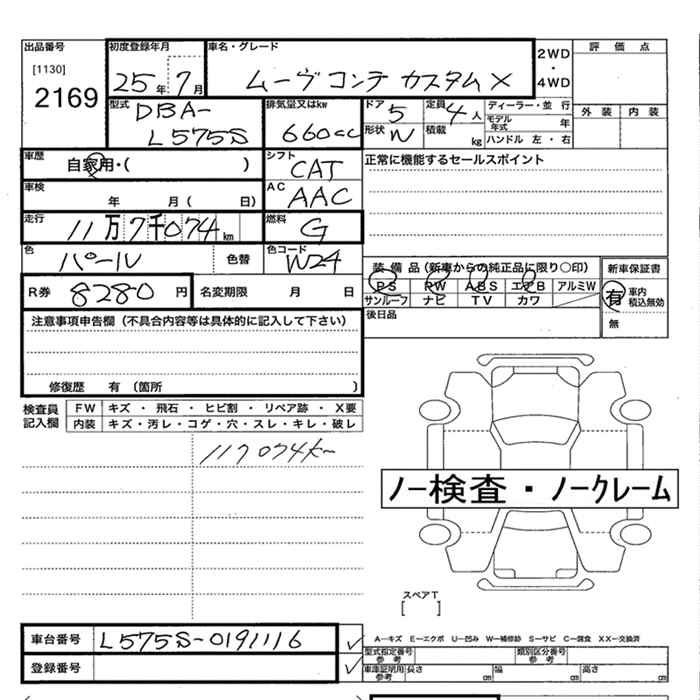 出品番号 初度登録年月 車名・グレード 2WD・4WD 評価点
[1130]
2169 25年7月 ムーヴコンテ カスタムX
外装 内装
型式 排気量又はkw ドア 5 定員 4人 ディーラー・並行
DBA-
L575S 660cc 形状 W 積載 kg モデル年式 年
ハンドル 左・右
車歴 自家用・( ) シフト CAT 正常に機能するセールスポイント
車検 年 月( 日) AC AAC
走行 11万7千074km 燃料 G
色 パール 色替 色コード W24
装備品(新車からの純正品に限り○印) 新車保証書
PS PW ABS エアB アルミW 有 車内積込無効
サンルーフ ナビ TV カワ 無
R券 8280円 名変期限 月 日 後日品
注意事項申告欄(不具合内容等は具体的に記入して下さい)
修復歴 有(箇所 )
検査員記入欄 FW キズ・飛石・ヒビ割・リペア跡・X要
内装 キズ・汚レ・コゲ・穴・スレ・キレ・破レ
117074km
ノー検査・ノークレーム
スペアT
[ ]
車台番号 L575S-0191116 A−キズ E−エクボ U−凹み W−補修跡 S−サビ C−腐食 XX−交換済
登録番号 型式指定番号 参考 類別区分番号 参考
車庫証明用 参考 長さ cm 幅 cm 高さ cm